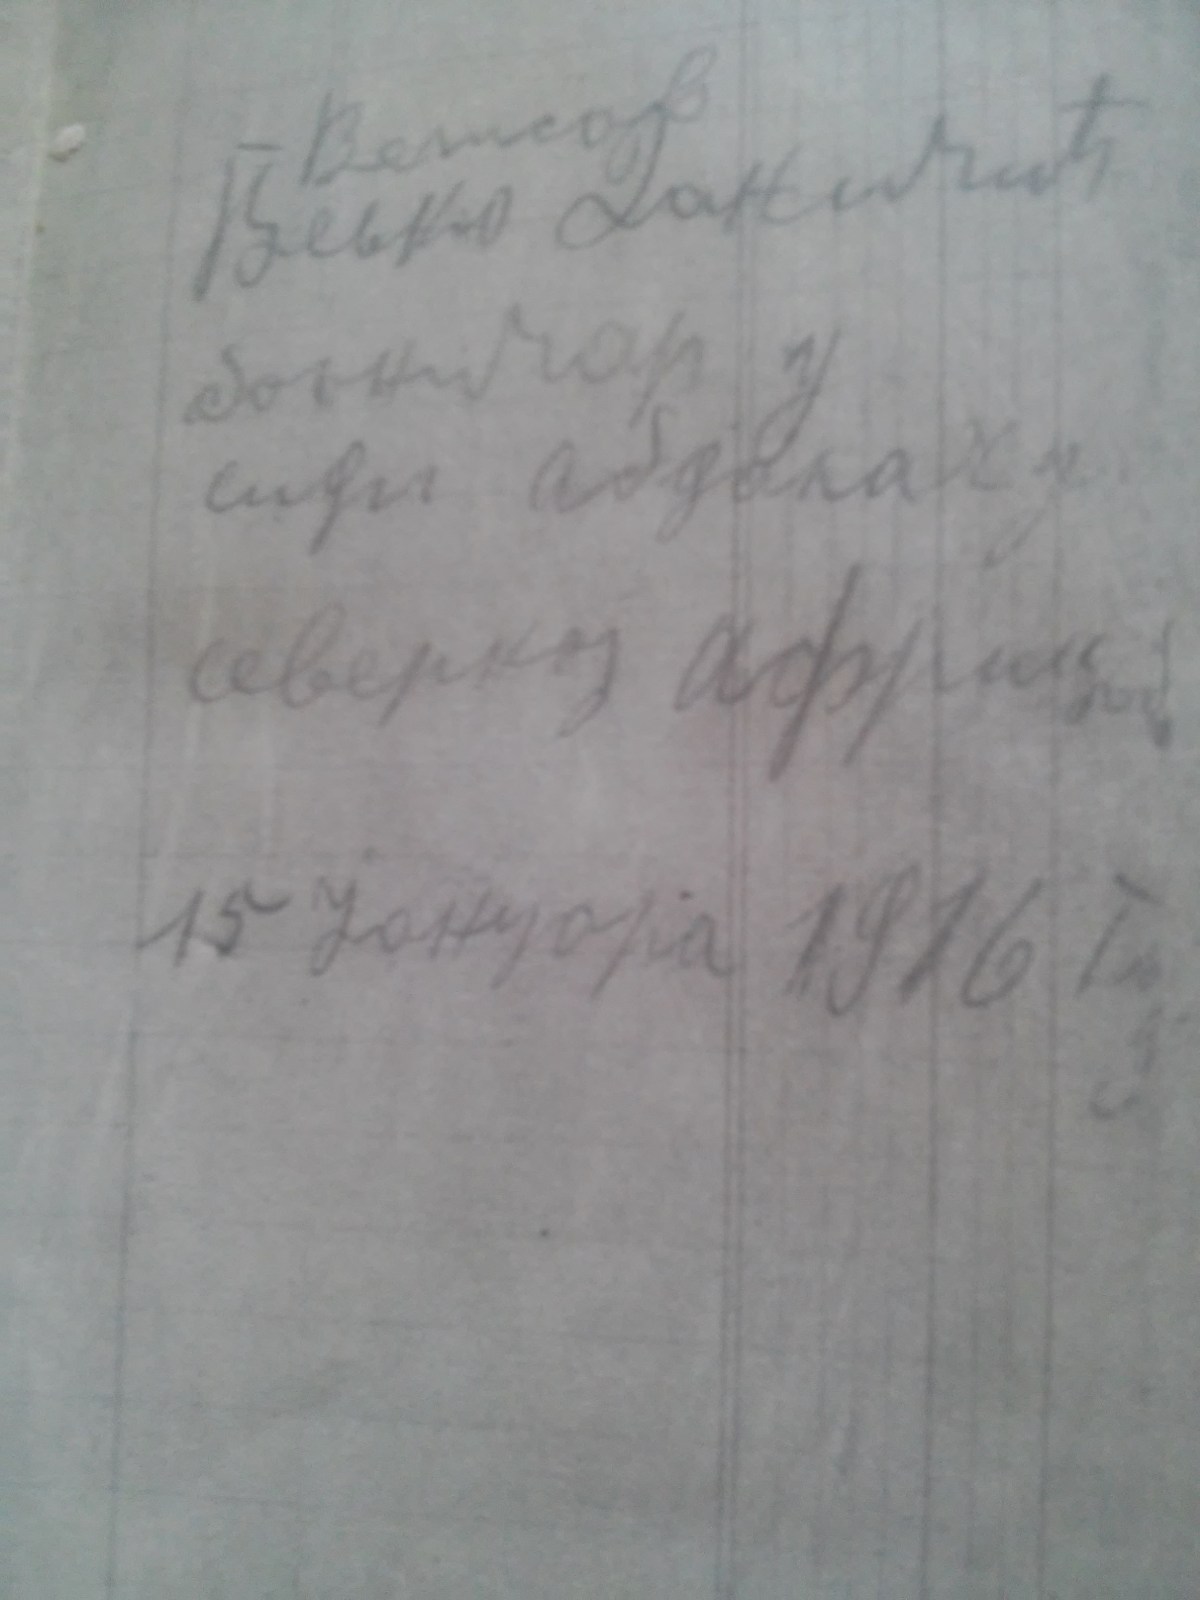 Велько Даничић
болничар у
сиди Абдалаху
северној Африци
15 Јануара 1916 Год